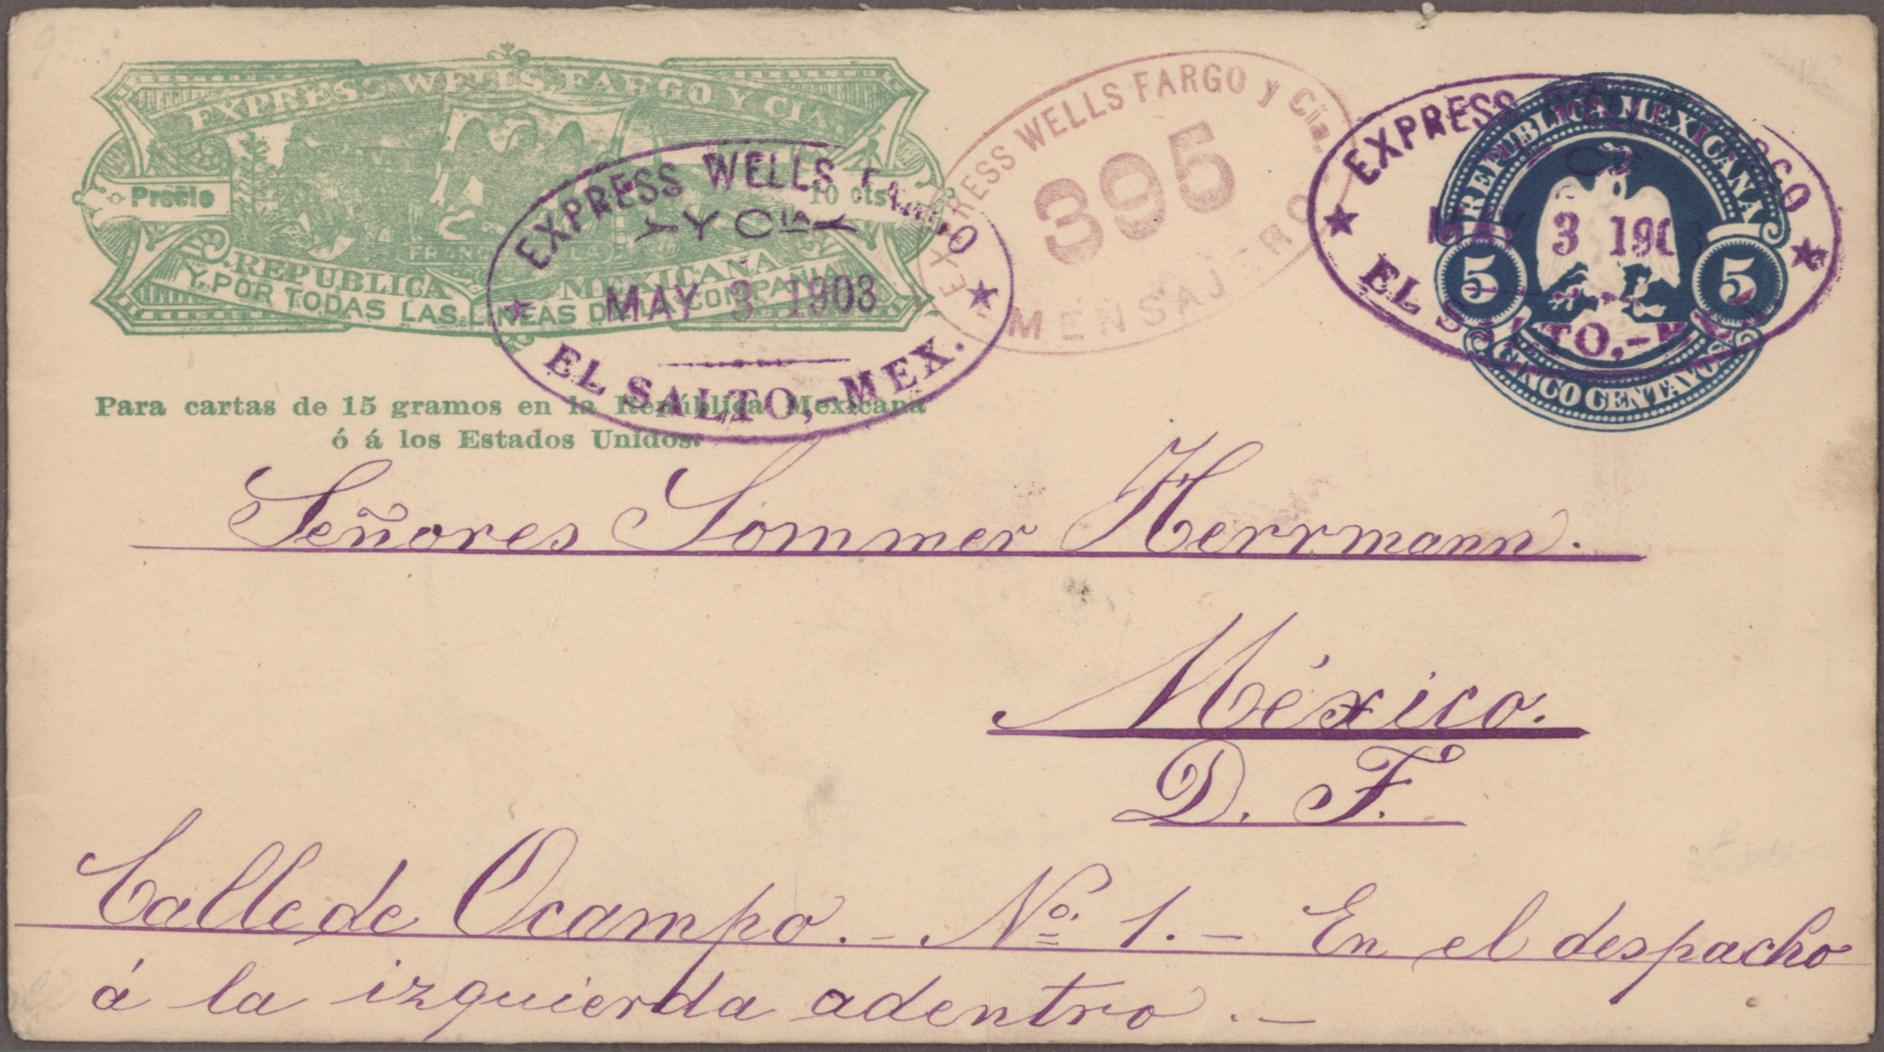 EXPRESS WELLS, FARGO Y CIA.
Precio
10 cts
FRANQUEO
REPUBLICA MEXICANA
Y POR TODAS LAS LINEAS DE LA COMPAÑIA
Para cartas de 15 gramos en la República Mexicana
ó á los Estados Unidos.
EXPRESS WELLS FARGO
Y CIA
MAY 3 1903
EL SALTO,-MEX.
EXPRESS WELLS FARGO y Cia.
395
MENSAJERO
REPUBLICA MEXICANA
5 5
CINCO CENTAVOS
EXPRESS WELLS FARGO
MAY 3 1903
EL SALTO,-MEX.
Señores Sommer Herrmann.
México.
D. F.
Calle de Ocampo. - Nº 1. - En el despacho
á la izquierda adentro. -